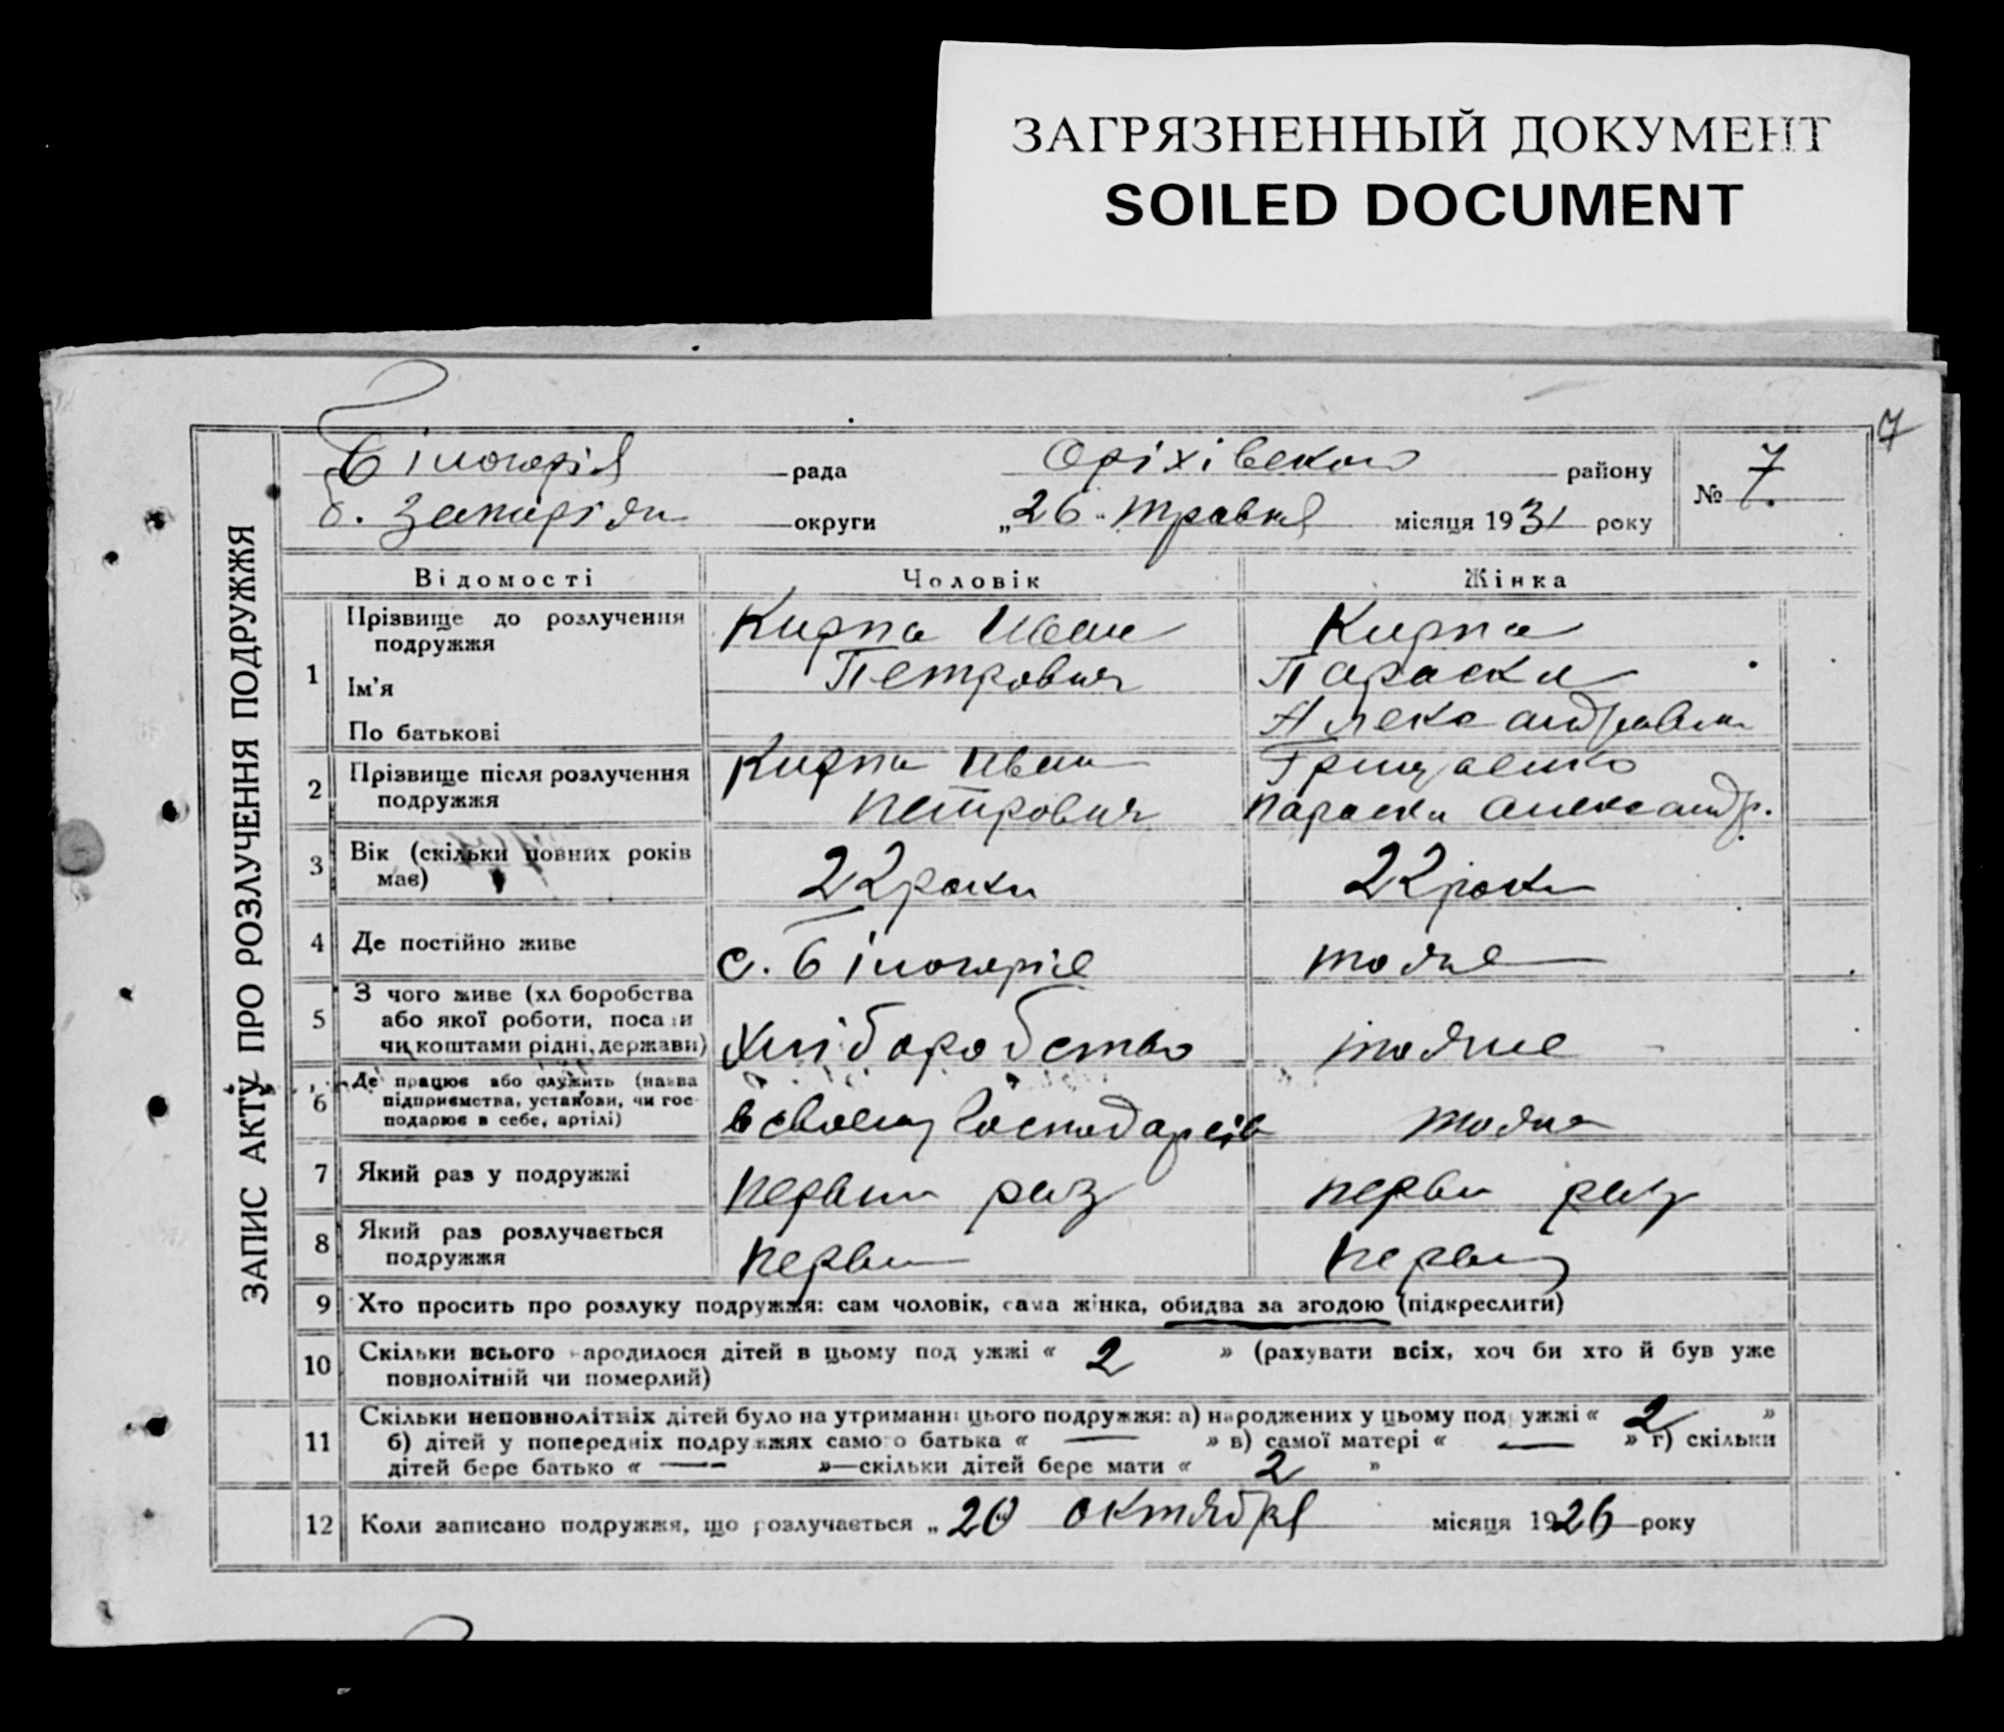 ЗАГРЯЗНЕННЫЙ ДОКУМЕНТ
SOILED DOCUMENT
7
ЗАПИС АКТУ ПРО РОЗЛУЧЕННЯ ПОДРУЖЖЯ
Білогорія рада Оріхівского району № 7.
б. округи „26" травня місяця 1931 року
Відомості Чоловік Жінка
1 Прізвище до розлучення подружжя Кирпа Иван Кирпа
Ім'я Петрович Параска
По батькові
2 Прізвище після розлучення Кирпа Иван Грищенко
подружжя Петрович Параски Александр.
3 Вік (скільки повних років має) 22 роки 22 роки
4 Де постійно живе с. Білогоріє тоже
5 З чого живе (хл боробства
або якої роботи, посади
чи коштами рідні, держави) Хліборобство тоже
6 Де працює або служить (назва
підприємства, установи, чи гос-
подарює в себе, артілі) в своему тоже
7 Який раз у подружжі раз раз
8 Який раз розлучається
подружжя
9 Хто просить про розлуку подружжя: сам чоловік, сама жінка, обидва за згодою (підкреслити)
10 Скільки всього народилося дітей в цьому под ужжі « 2 » (рахувати всіх, хоч би хто й був уже
повнолітній чи померлий)
11 Скільки неповнолітніх дітей було на утриманні цього подружжя: а) народжених у цьому под ужжі « 2 »
б) дітей у попередніх подружжях самого батька « — » в) самої матері « — » г) скільки
дітей бере батько « — »—скільки дітей бере мати « 2 »
12 Коли записано подружжя, що розлучається „ 20 октября місяця 1926 року